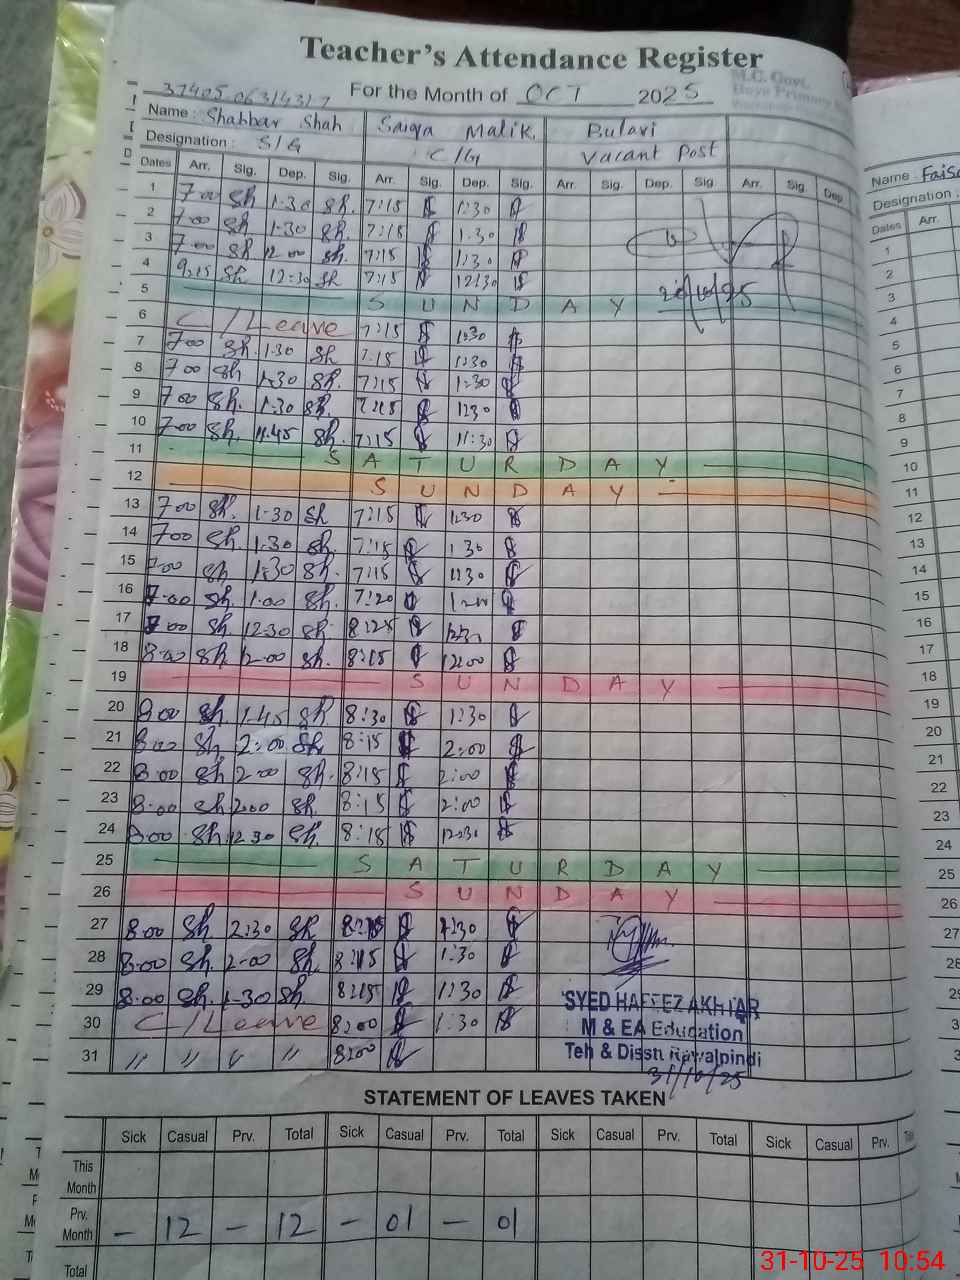 Teacher's Attendance Register
M.C. Govt.
Boys Primary
For the Month of OCT 2025
Name : Shabbar Shah Saiqa Malik. Bulavi
Designation : S/G C/G Vacant Post
Dates Arr. Sig. Dep. Sig. Arr. Sig. Dep. Sig. Arr. Sig. Dep. Sig. Arr. Sig. Dep.
1 7-00 Sh 1-30 Sh. 7:15 1:30
2 7-00 Sh 1-30 Sh. 7:15 1.30
3 7-00 Sh 12 00 Sh. 7:15 1:30
4 9.15 Sh 12-30 Sh 7:15 12:30
5 S U N D A Y
6 C/Leave 7:15 1:30
7 7-00 Sh. 1-30 Sh 7:15 1:30
8 7-00 Sh 1-30 Sh. 7:15 1:30
9 7-00 Sh. 1-30 Sh. 7:15 1:30
10 7-00 Sh. 11.45 Sh. 7:15 11:30
11 S A T U R D A Y
12 S U N D A Y
13 7-00 Sh. 1-30 Sh 7:15 1:30
14 7-00 Sh. 1-30 Sh. 7:15 1:30
15 7-00 Sh 1-30 Sh. 7:15 1:30
16 7-00 Sh. 1-00 Sh. 7:20
17 Sh. 12-30 Sh. 8:25
18 8-00 Sh. 12-00 Sh. 8:15 12:00
19 S U N D A Y
20 8-00 Sh. 1-45 Sh 8:30 1:30
21 8-00 Sh. 2-00 Sh 8:15 2:00
22 8-00 Sh 2-00 Sh. 8:15 2:00
23 8-00 Sh 2-00 Sh. 8:15 2:00
24 8-00 Sh. 12 30 Sh. 8:15 12:30
25 S A T U R D A Y
26 S U N D A Y
27 8-00 Sh 2:30 Sh
28 8-00 Sh. 2-00 Sh. 8:15 1:30
29 8-00 Sh. 1-30 Sh. 8:15 1:30
30 C/Leave 8:00 1:30
31 〃 〃 〃 〃 8:00
SYED HAFEEZ AKHTAR
M & EA Education
Teh & Disstt Rawalpindi
31/10/25
STATEMENT OF LEAVES TAKEN
Sick Casual Prv. Total Sick Casual Prv. Total Sick Casual Prv. Total Sick Casual Prv.
This
Month
Prv.
Month – 12 – 12 – 01 – 01
Total
Name :
Designation :
Dates Arr.
1
2
3
4
5
6
7
8
9
10
11
12
13
14
15
16
17
18
19
20
21
22
23
24
25
26
27
28
29
30
31-10-25 10:54